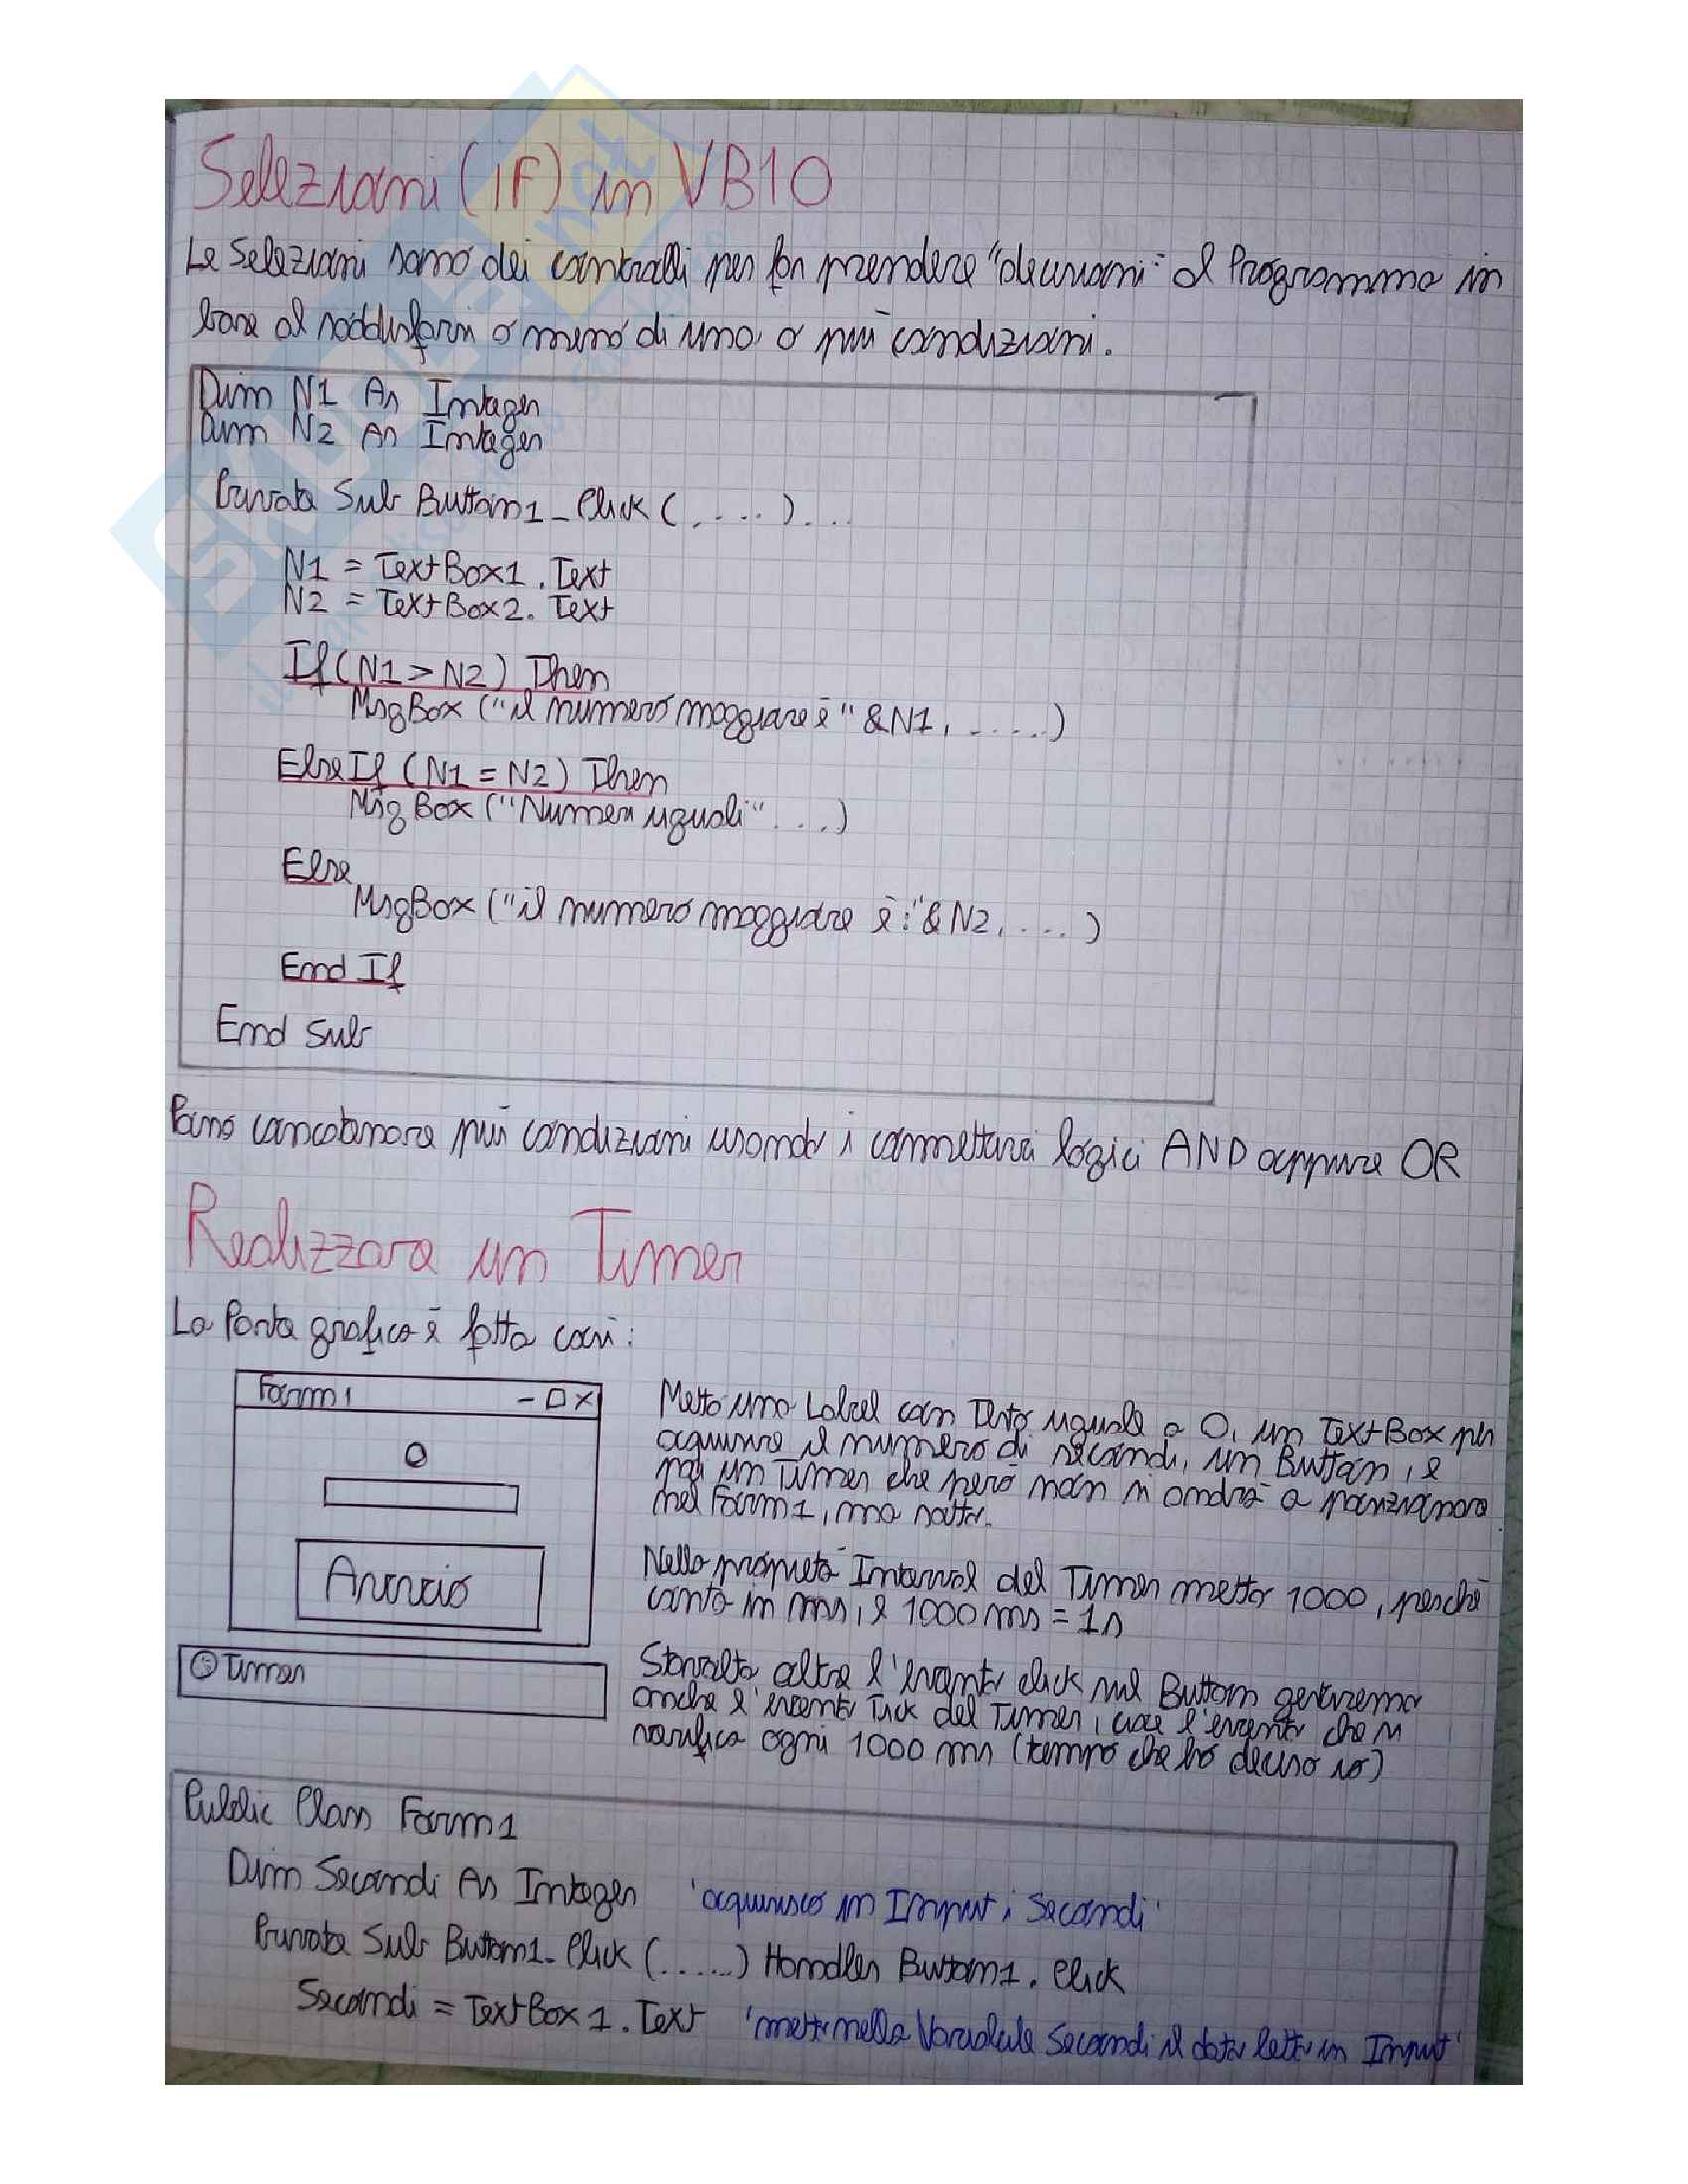 Selezioni (if) in VB10
Le Selezioni sono dei controlli per far prendere "decisioni" al Programma in
base al soddisfarsi o meno di una o più condizioni.
Dim N1 As Integer
Dim N2 As Integer
Private Sub Button1_Click (.....)...
N1 = TextBox1.Text
N2 = TextBox2.Text
If (N1 > N2) Then
MsgBox ("il numero maggiore è" & N1, .....)
ElseIf (N1 = N2) Then
MsgBox ("Numeri uguali" ....)
Else
MsgBox ("il numero maggiore è:" & N2, ....)
End If
End Sub
Posso concatenare più condizioni usando i connettivi logici AND oppure OR
Realizzare un Timer
La Parte grafica è fatta così:
Form1 - □ X
0
Avvio
Timer
Metto una Label con Testo uguale a 0, un TextBox per
acquisire il numero di secondi, un Button, e
poi un Timer che però non si andrà a posizionare
nel Form1, ma sotto.
Nella proprietà Interval del Timer metto 1000, perché
conta in ms, e 1000 ms = 1s
Stavolta oltre l'evento click sul Button gestiremo
anche l'evento Tick del Timer, cioè l'evento che si
verifica ogni 1000 ms (tempo che ho deciso io)
Public Class Form1
Dim Secondi As Integer 'acquisisco in Input i Secondi'
Private Sub Button1_Click (......) Handles Button1.Click
Secondi = TextBox1.Text 'metto nella Variabile Secondi il dato letto in Input'